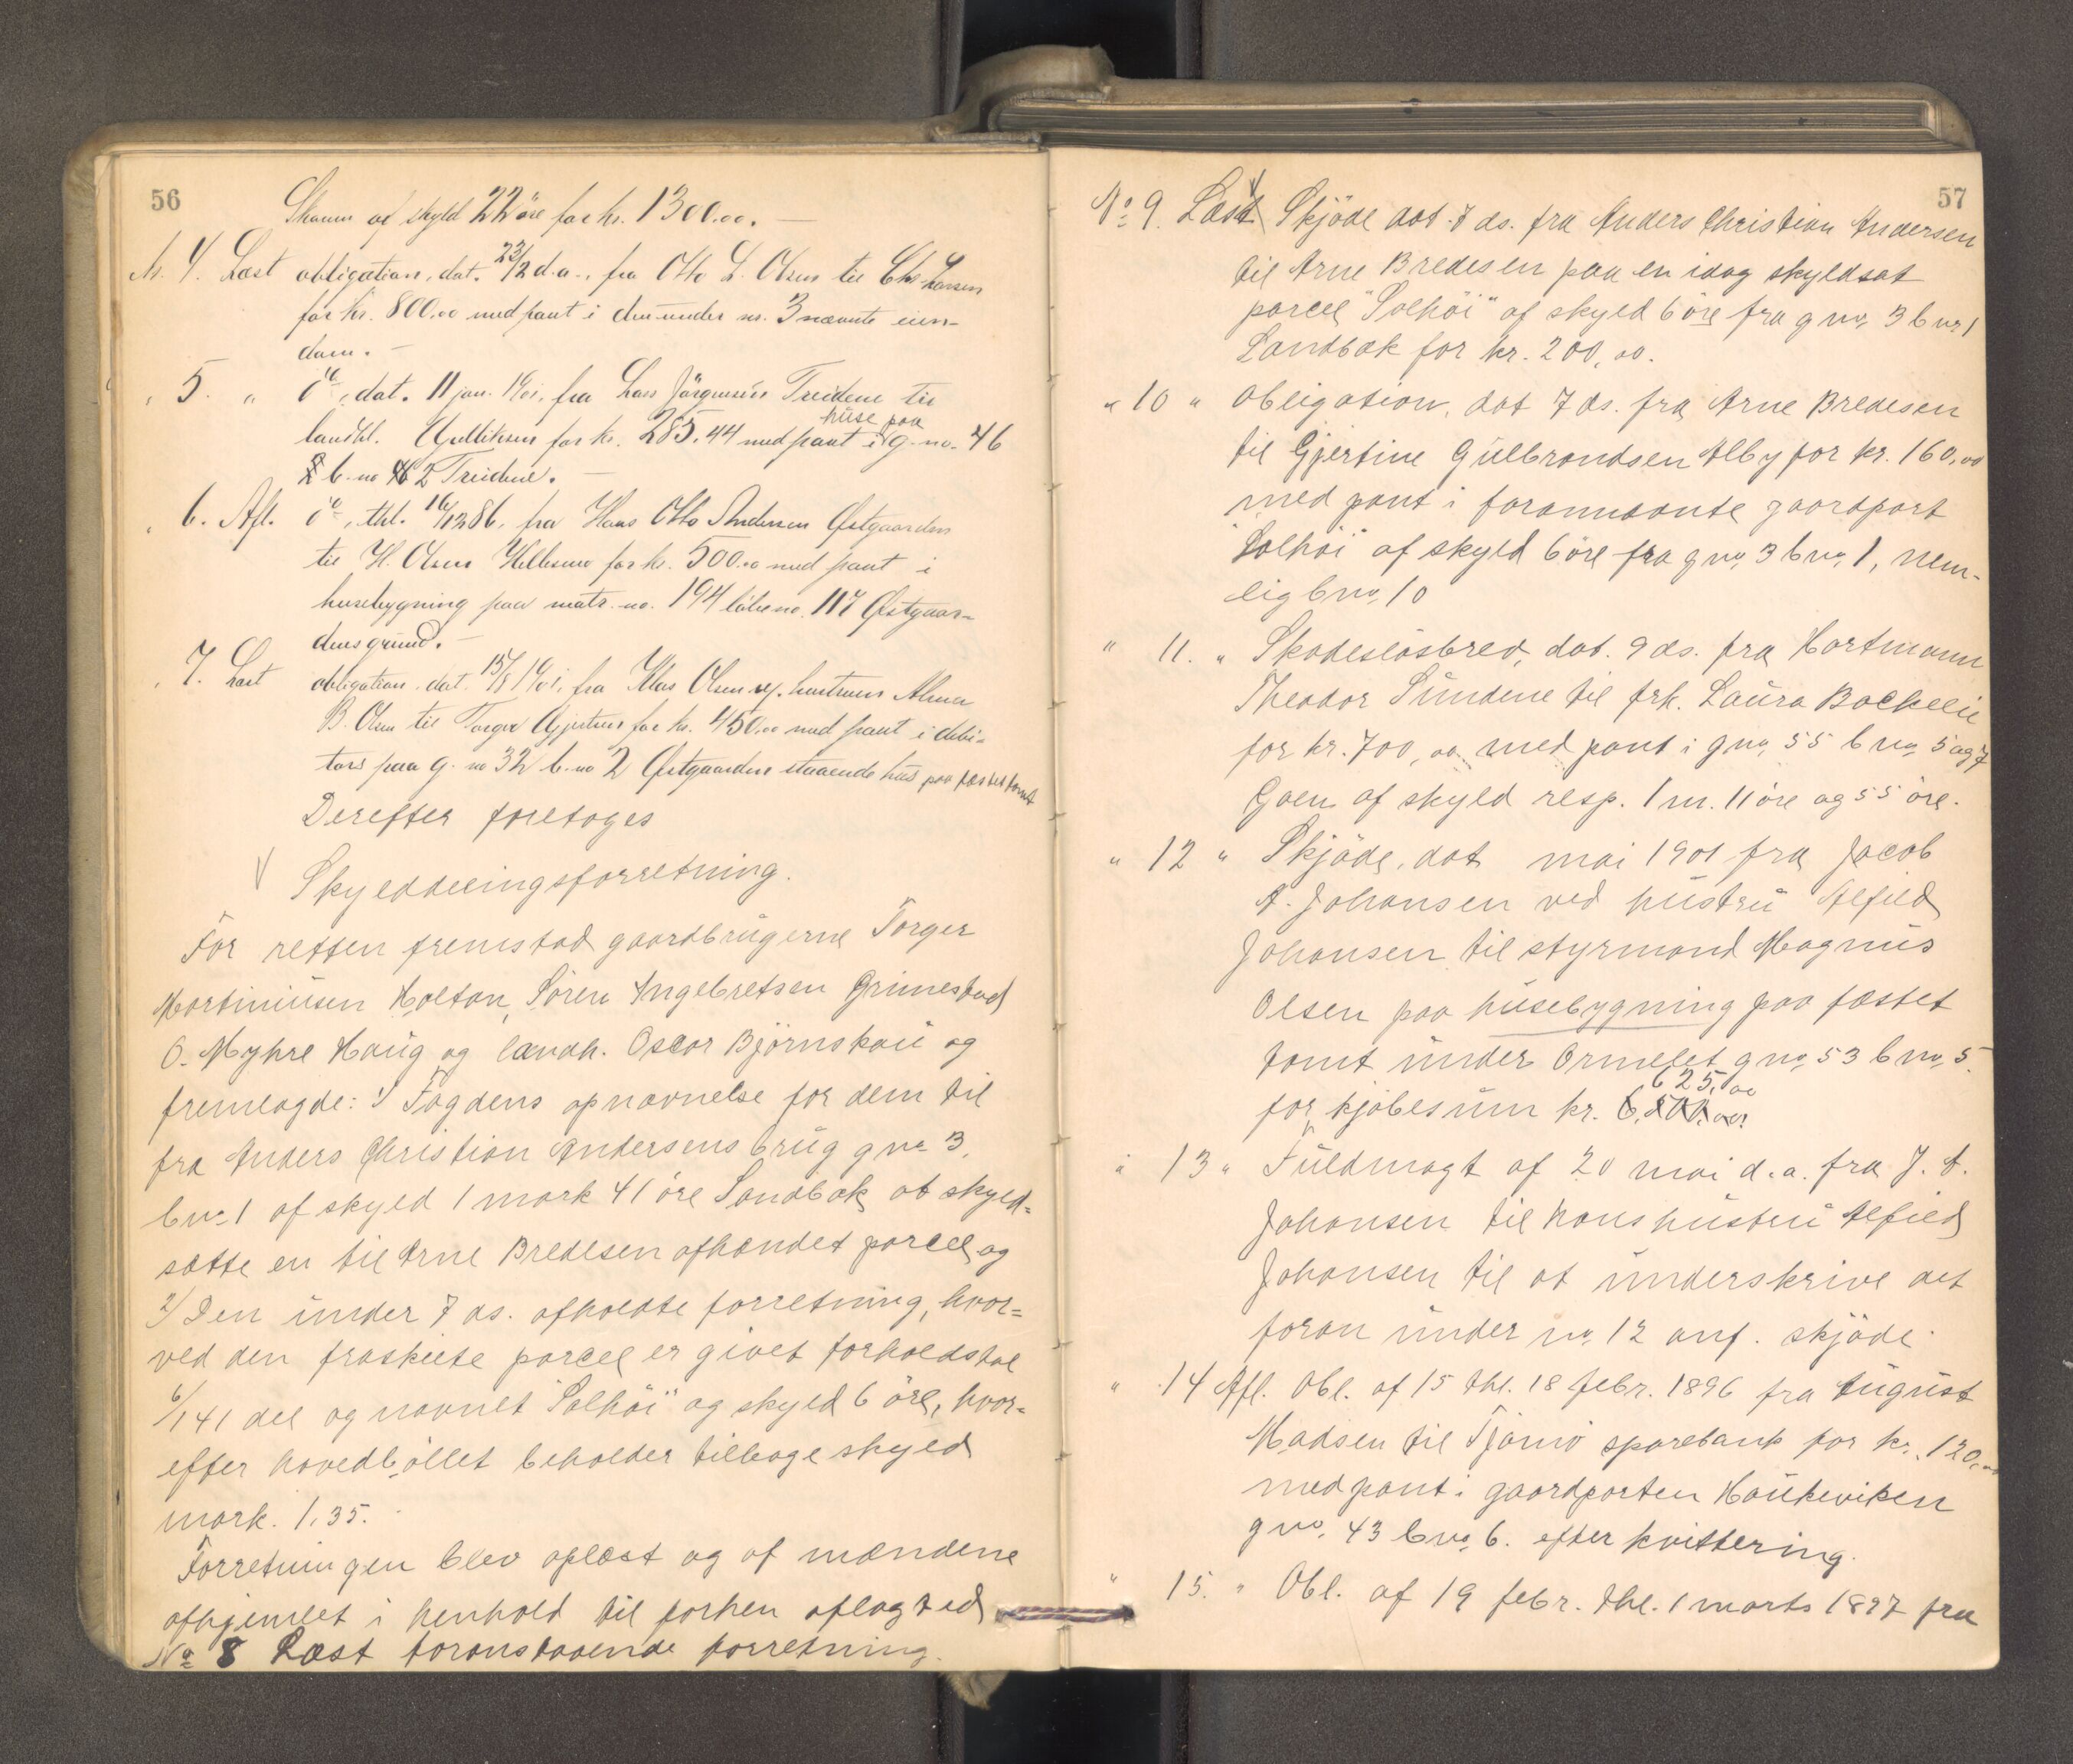 56
Skaum af skyld 22 öre for kr. 1300.00. —
Nr. 4. Læst obligation, dat. 23/2 d.a., fra Otto L. Olsen til Chr. Larsen
for kr. 800.00 med pant i den under nr. 3 nævnte eien-
dom. —
" 5. " do, dat. 11 jan. 1901, fra Lars Jörgensen Treidene til
landhl. Gullitsen for kr. 285.44 med pant i huse paa g. no. 46
b. no 2 Treidene. —
" 6. Afl. do, thl. 16/12 86, fra Hans Otto Andersen Østgaarden
til H. Olsen Hellesmo for kr. 500.00 med pant i
husebygning paa matr. no. 194 löbeno. 117 Østgaar-
dens grund. —
" 7. Læst obligation, dat. 15/5 1901, fra Klas Olsen og hustru Alma
B. Olsen til Torger Gjertsen for kr. 450.00 med pant i debi-
tors paa g. no 32 b. no 2 Østgaarden staaende hus paa fæstet tomt
Derefter foretoges
Skylddelingsforretning.
For retten fremstod gaardbrugerne Torger
Martiniusen Holtan, Sören Ingebretsen Grimestad
O. Myhre Haug og landh. Oscar Björnskau og
fremlagde: 1/ Fogdens opnævnelse for dem til
fra Anders Christian Andersens brug gno 3,
bno 1 af skyld 1 mark 41 öre Sandbæk at skyld-
sætte en til Arne Bredesen afhændet parcel, og
2/ Den under 7 ds. afholdte forretning, hvor-
ved den fraskilte parcel er givet forholdstal
6/141 del og navnet "Solhöi" og skyld 6 öre, hvor-
efter hovedböllet beholder tilbage skyld
mark. 1,35.
Forretningen blev oplæst og af mændene
afhjemlet i henhold til forhen aflagt ed
No 8 Læst foranstaaende forretning.
57
No 9. Læst Skjöde dat. 7 ds. fra Anders Christian Andersen
til Arne Bredesen paa en idag skyldsat
parcel "Solhöi" af skyld 6 öre fra gno. 3 bno. 1
Sandbæk for kr. 200,00.
" 10 " Obligation, dat 7 ds. fra Arne Bredesen
til Gjertine Gulbrandsen Alby for kr. 160,00
med pant i forannævnte gaardpart
"Solhöi" af skyld 6 öre fra gno. 3 bno. 1, nem-
lig bno. 10
" 11. " Skadeslösbrev, dat. 9 ds. fra Hartmann
Theodor Sundene til frk. Laura Bockelie
for kr. 700,00 med pant i gno. 55 bno. 5 og 7
Goen af skyld resp. 1 m. 11 öre og 55 öre.
" 12 " Skjöde, dat mai 1901 fra Jacob
A. Johansen ved hustru Alfild
Johansen til styrmand Magnus
Olsen paa husebygning paa fæstet
tomt under Ormelet gno. 53 bno. 5.
for kjöbesum kr. 625,00
" 13 " Fuldmagt af 20 mai d.a. fra J. A.
Johansen til hans hustru Alfild
Johansen til at underskrive det
foran under no. 12 anf. skjöde.
" 14 Afl. Obl. af 15 thl. 18 febr. 1896 fra August
Madsen til Tjömö sparebank for kr. 120,00
med pant i gaardparten Haukeviken
gno. 43 bno. 6. efter kvittering.
" 15. " Obl. af 19 febr. thl. 1 marts 1897 fra